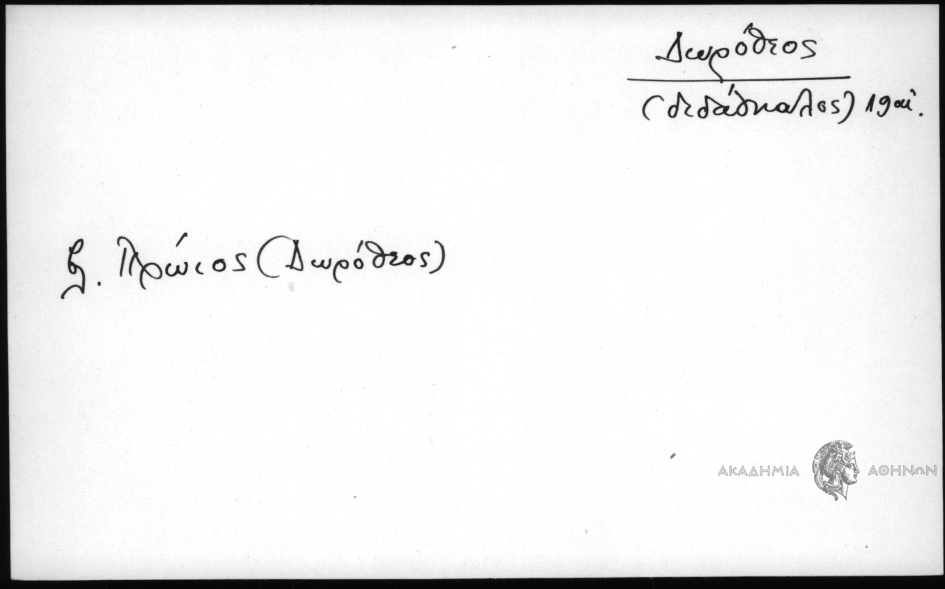 Δωρόθεος
(διδάσκαλος) 19 αἰ.
βλ. Πρώιος (Δωρόθεος)
ΑΚΑΔΗΜΙΑ ΑΘΗΝΩΝ